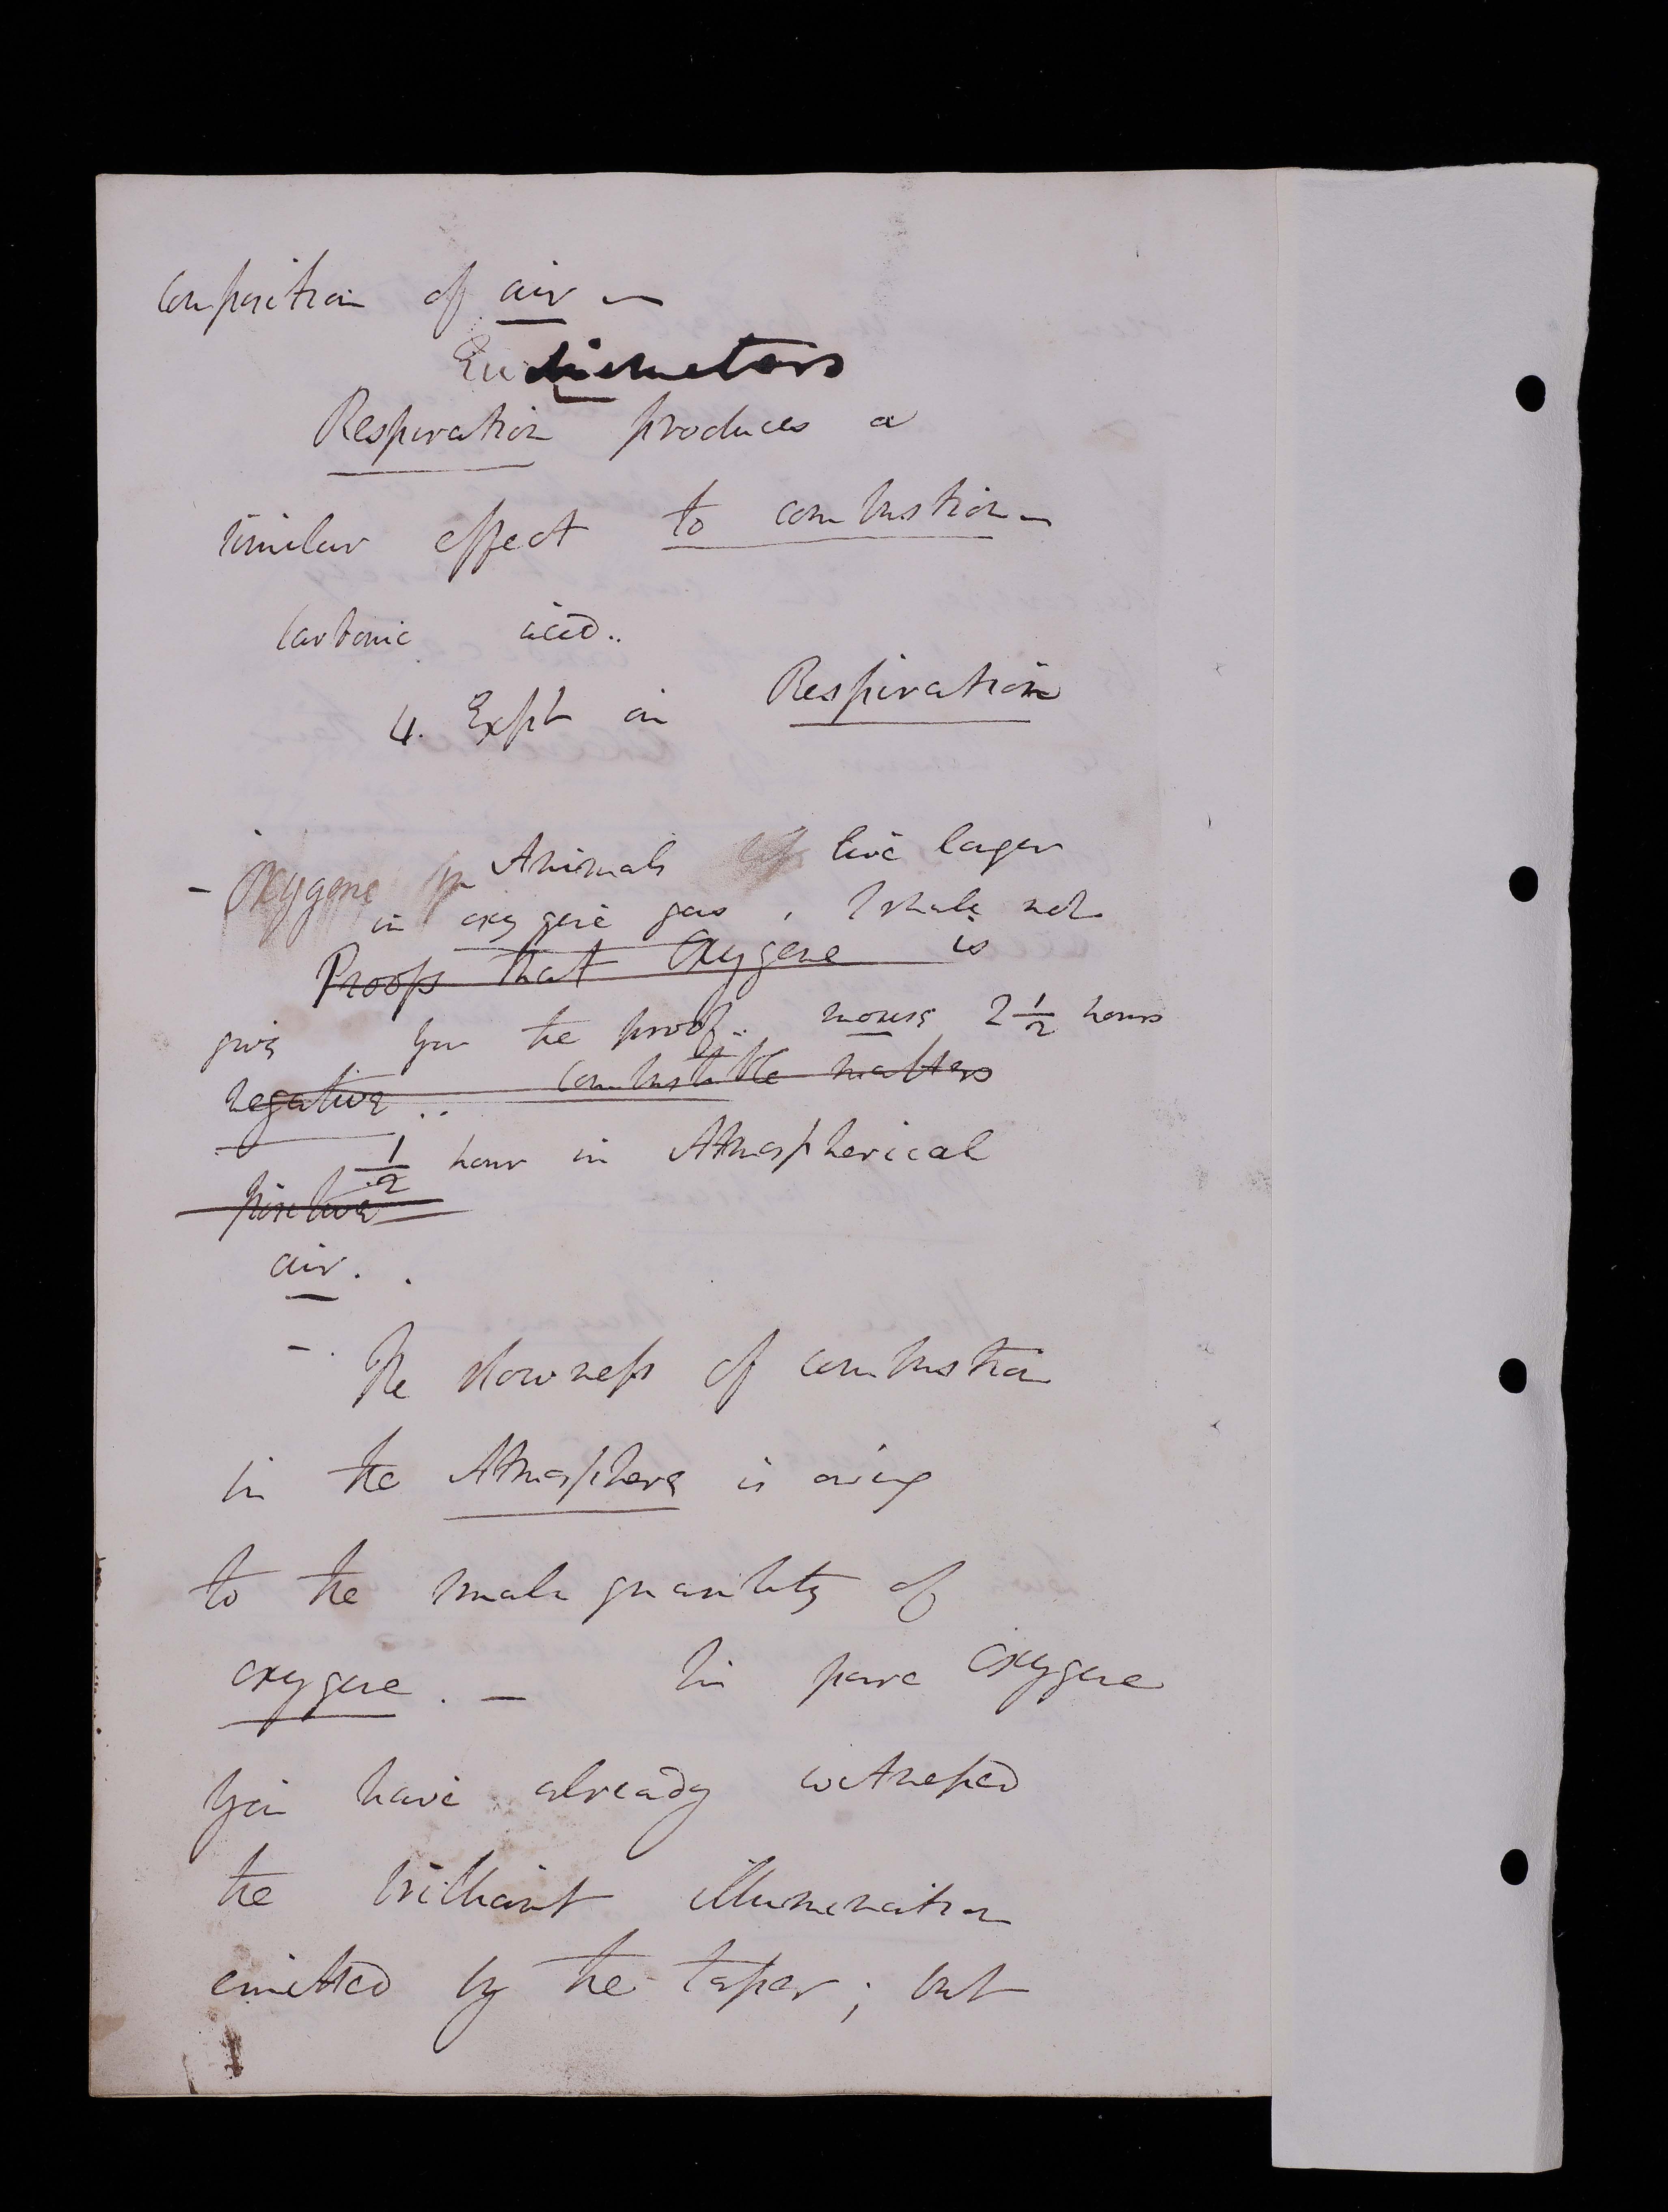 composition of air —
Eudiometers
Respiration produces a
similar effect to combustion —
carbonic acid..
4. Expt on Respiration
- Oxygene Animals live longer
in oxygene gas , I shall not
Proofs that Oxygene is
give you the proof.. mouse 2 1/2 hours
negative .. combustible matters
1/2 hour in Atmospherical
positive
air . .
- . The slowness of combustion
in the Atmosphere is owing
to the small quantity of
oxygene . — In pure Oxygene
you have already witnessed
the brilliant illumination
emitted by the taper ; but